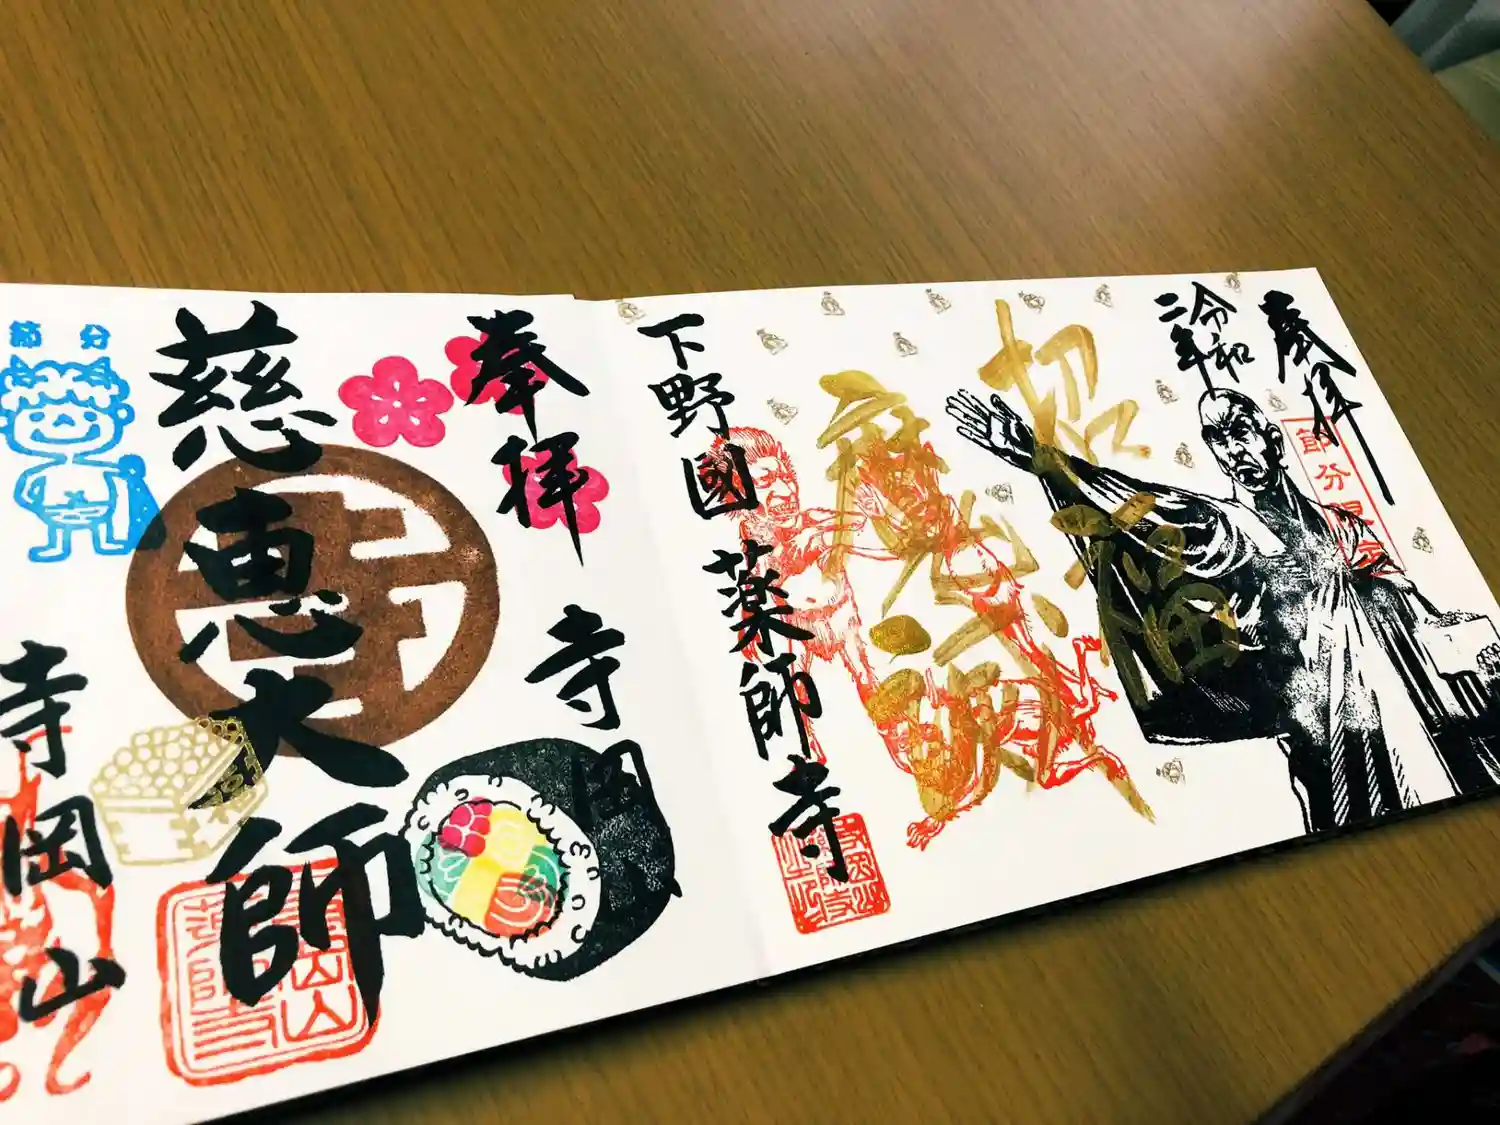 奉拝
節分限定
令和
二年
招福
下野國 薬師寺
奉拝 寺岡
慈恵大師
節分
寺岡山